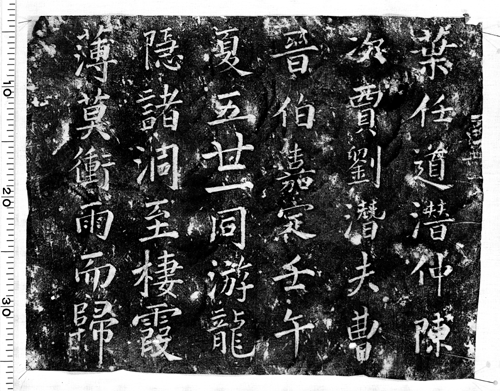 葉任道潛仲陳
次賈劉潛夫曹
晉伯嘉定壬午
夏五廿一同游龍
隱諸洞至棲霞
薄莫衝雨而歸
10
20
30